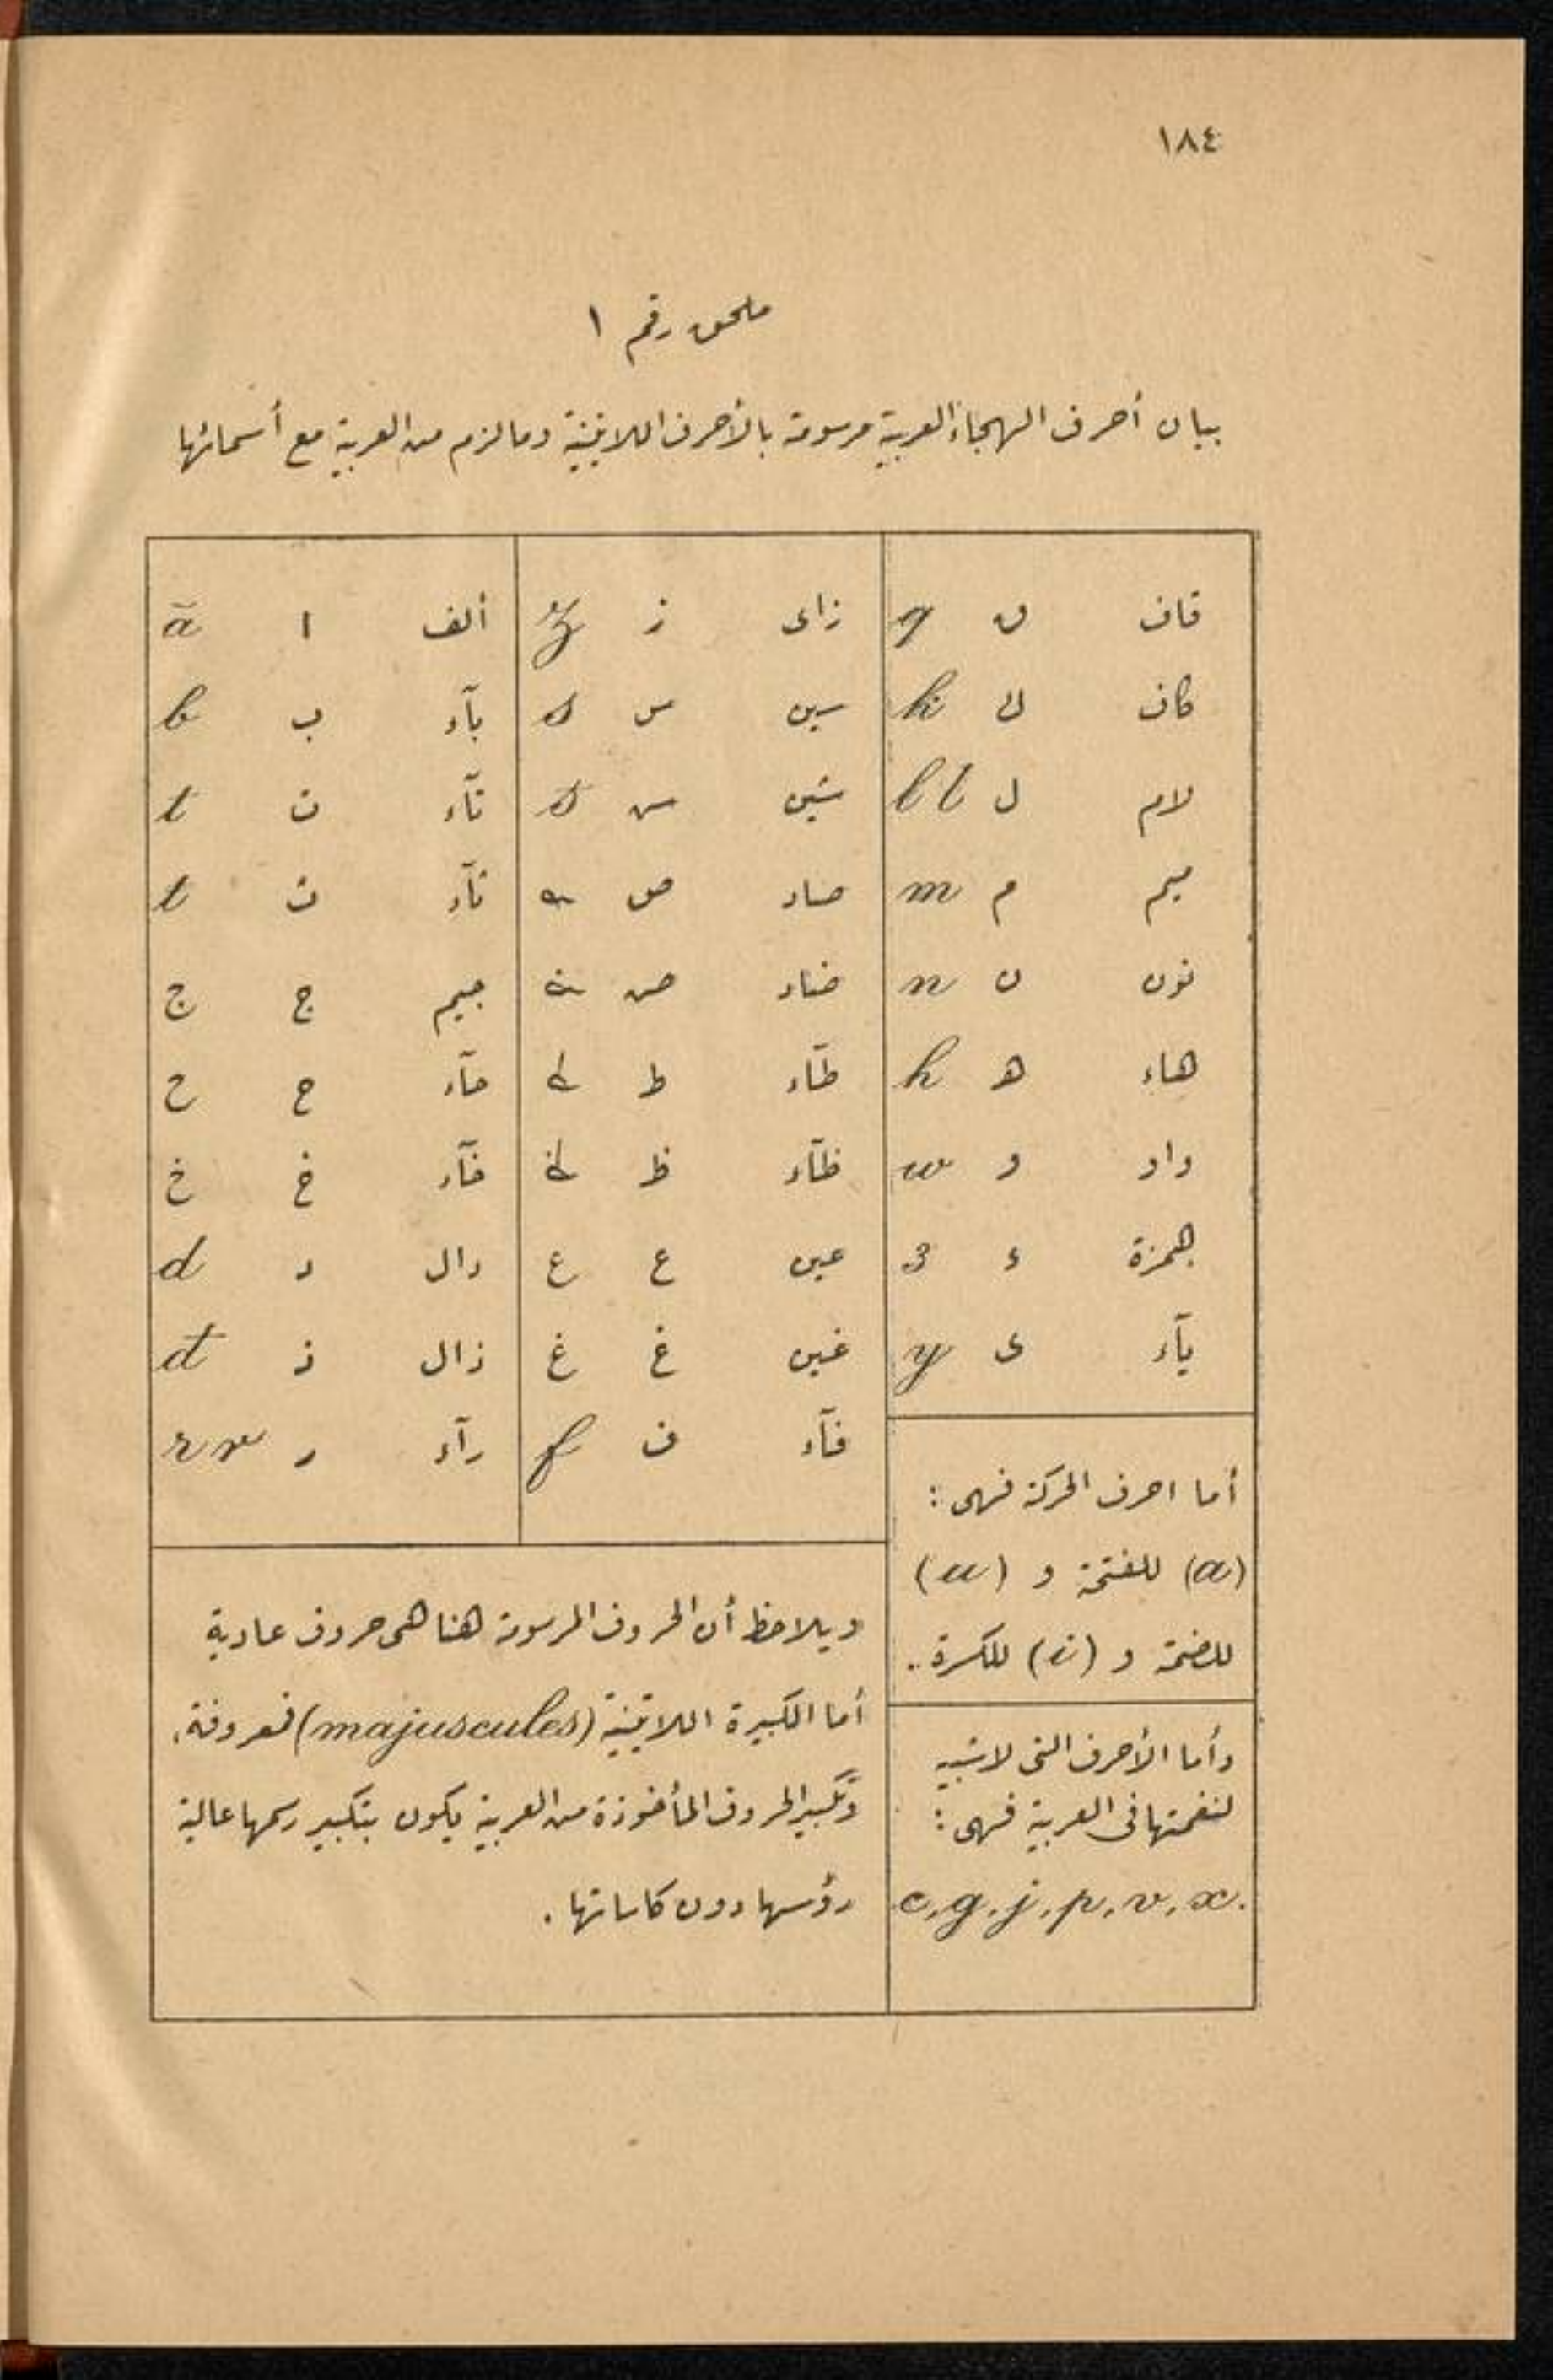 ١٨٤
ملحق رقم ١
بيان أحرف الهجاء العربية مرسومة بالأحرف اللاتينية وما لزم من العربية مع أسمائها
ألف ا ā
بآء ب b
تآء ت t
ثآء ث t
جيم ج ج
حآء ح ح
خآء خ خ
دال د d
ذال ذ đ
رآء ر r r
زاى ز z
سين س s
شين ش s
صاد ص
ضاد ض
طآء ط
ظآء ظ
عين ع ع
غين غ غ
فآء ف f
قاف ق q
كاف ك k
لام ل l l
ميم م m
نون ن n
هاء ه h
واو و w
همزة ء 3
يآء ى y
أما احرف الحركة فهى :
(a) للفتحة و (u)
للضمة و (i) للكسرة ..
وأما الأحرف التى لا شبيه
لنغمتها فى العربية فهى :
c, g, j, p, v, x.
ويلاحظ أن الحروف المرسومة هنا هى حروف عادية
أما الكبيرة اللاتينية (majuscules) فمعروفة،
وتكبير الحروف المأخوذة من العربية يكون بتكبير رسمها عالية
رؤسها دون كاساتها .